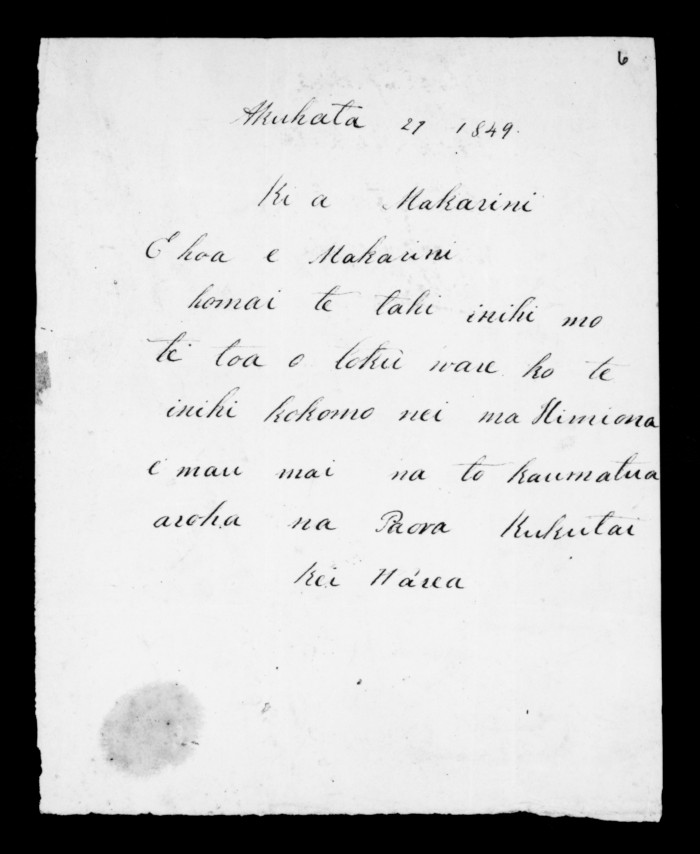 6
Akuhata 27 1849.
Ki a Makarini
E hoa e Makarini
homai te tahi inihi mo
te toa o tokù ware ko te
inihi kokomo nei ma Himiona
e mau mai na to kaumatua
aroha na Paora Kukutai
Kei Hárea